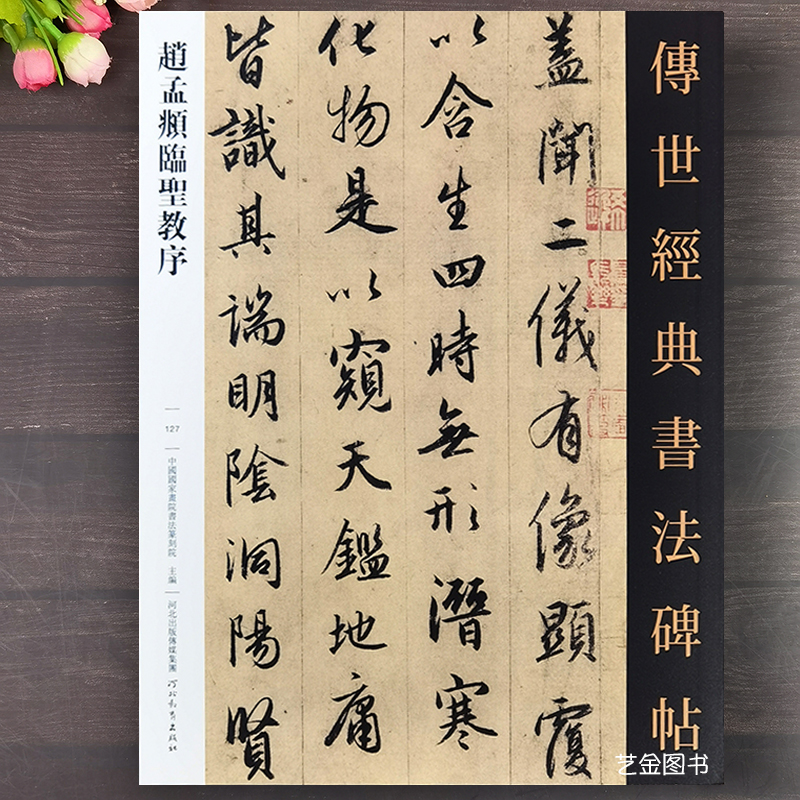 傳世經典書法碑帖
蓋聞二儀有像顯覆
以含生四時無形潛寒
化物是以窺天鑑地庸
皆識其端明陰洞陽賢
趙孟頫臨聖教序
127
中國國家畫院書法篆刻院 主編
河北出版傳媒集團
河北教育出版社
艺金图书